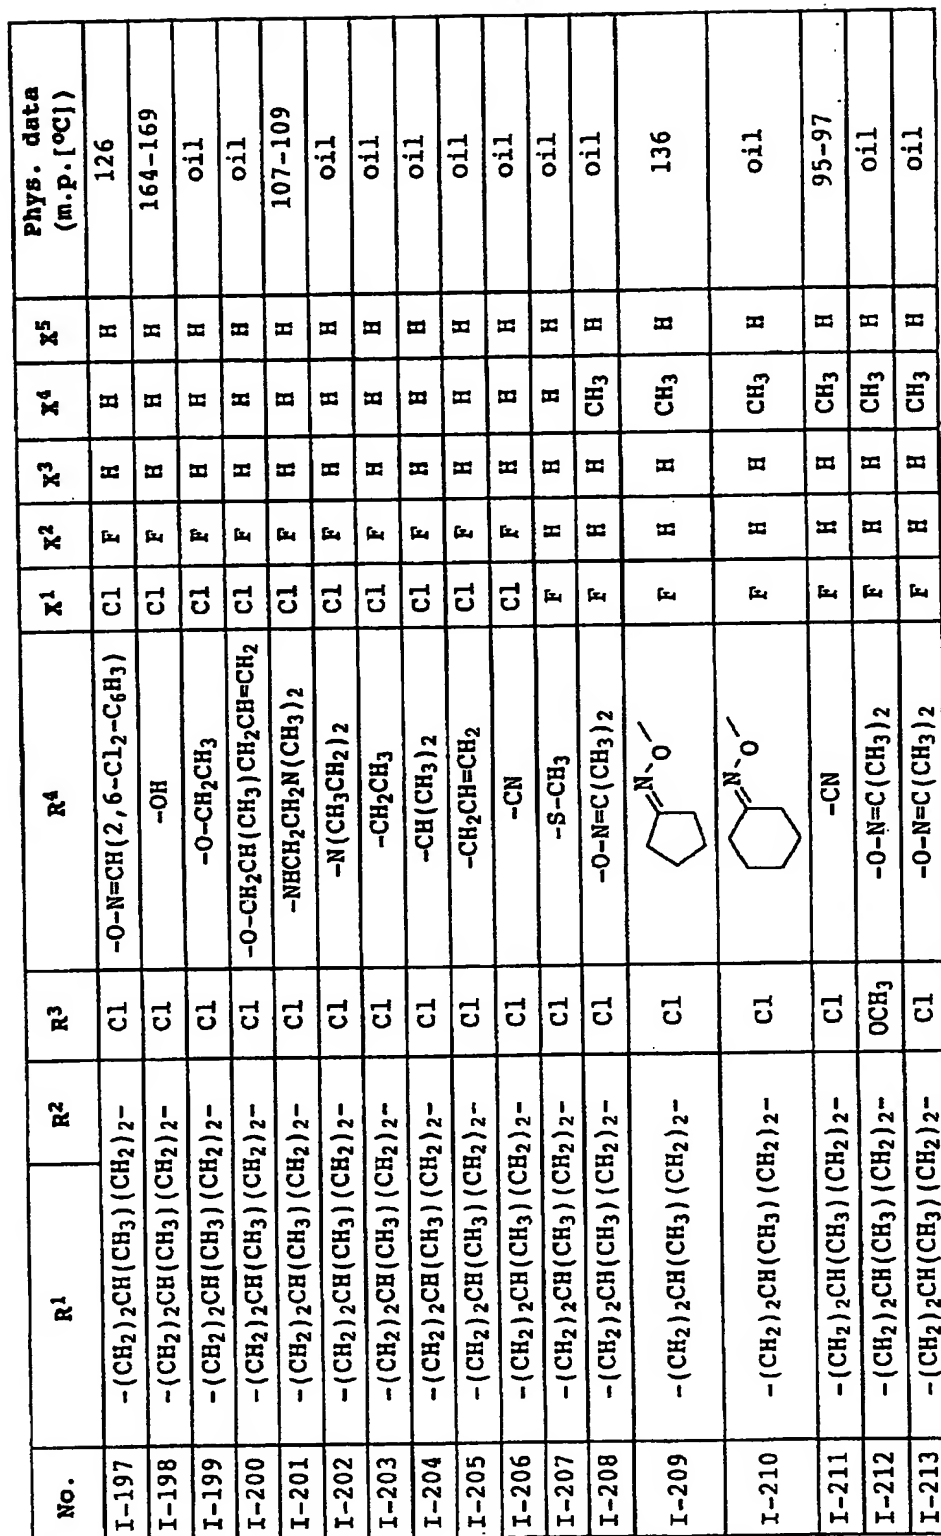 No. R¹ R² R³ R⁴ X¹ X² X³ X⁴ X⁵ Phys. data
(m.p.[°C])
I-197 -(CH₂)₂CH(CH₃)(CH₂)₂- Cl -O-N=CH(2,6-Cl₂-C₆H₃) Cl F H H H 126
I-198 -(CH₂)₂CH(CH₃)(CH₂)₂- Cl -OH Cl F H H H 164-169
I-199 -(CH₂)₂CH(CH₃)(CH₂)₂- Cl -O-CH₂CH₃ Cl F H H H oil
I-200 -(CH₂)₂CH(CH₃)(CH₂)₂- Cl -O-CH₂CH(CH₃)CH₂CH=CH₂ Cl F H H H oil
I-201 -(CH₂)₂CH(CH₃)(CH₂)₂- Cl -NHCH₂CH₂N(CH₃)₂ Cl F H H H 107-109
I-202 -(CH₂)₂CH(CH₃)(CH₂)₂- Cl -N(CH₃CH₂)₂ Cl F H H H oil
I-203 -(CH₂)₂CH(CH₃)(CH₂)₂- Cl -CH₂CH₃ Cl F H H H oil
I-204 -(CH₂)₂CH(CH₃)(CH₂)₂- Cl -CH(CH₃)₂ Cl F H H H oil
I-205 -(CH₂)₂CH(CH₃)(CH₂)₂- Cl -CH₂CH=CH₂ Cl F H H H oil
I-206 -(CH₂)₂CH(CH₃)(CH₂)₂- Cl -CN Cl F H H H oil
I-207 -(CH₂)₂CH(CH₃)(CH₂)₂- Cl -S-CH₃ F H H H H oil
I-208 -(CH₂)₂CH(CH₃)(CH₂)₂- Cl -O-N=C(CH₃)₂ F H H CH₃ H oil
I-209 -(CH₂)₂CH(CH₃)(CH₂)₂- Cl N-O F H H CH₃ H 136
I-210 -(CH₂)₂CH(CH₃)(CH₂)₂- Cl N-O F H H CH₃ H oil
I-211 -(CH₂)₂CH(CH₃)(CH₂)₂- Cl -CN F H H CH₃ H 95-97
I-212 -(CH₂)₂CH(CH₃)(CH₂)₂- OCH₃ -O-N=C(CH₃)₂ F H H CH₃ H oil
I-213 -(CH₂)₂CH(CH₃)(CH₂)₂- Cl -O-N=C(CH₃)₂ F H H CH₃ H oil